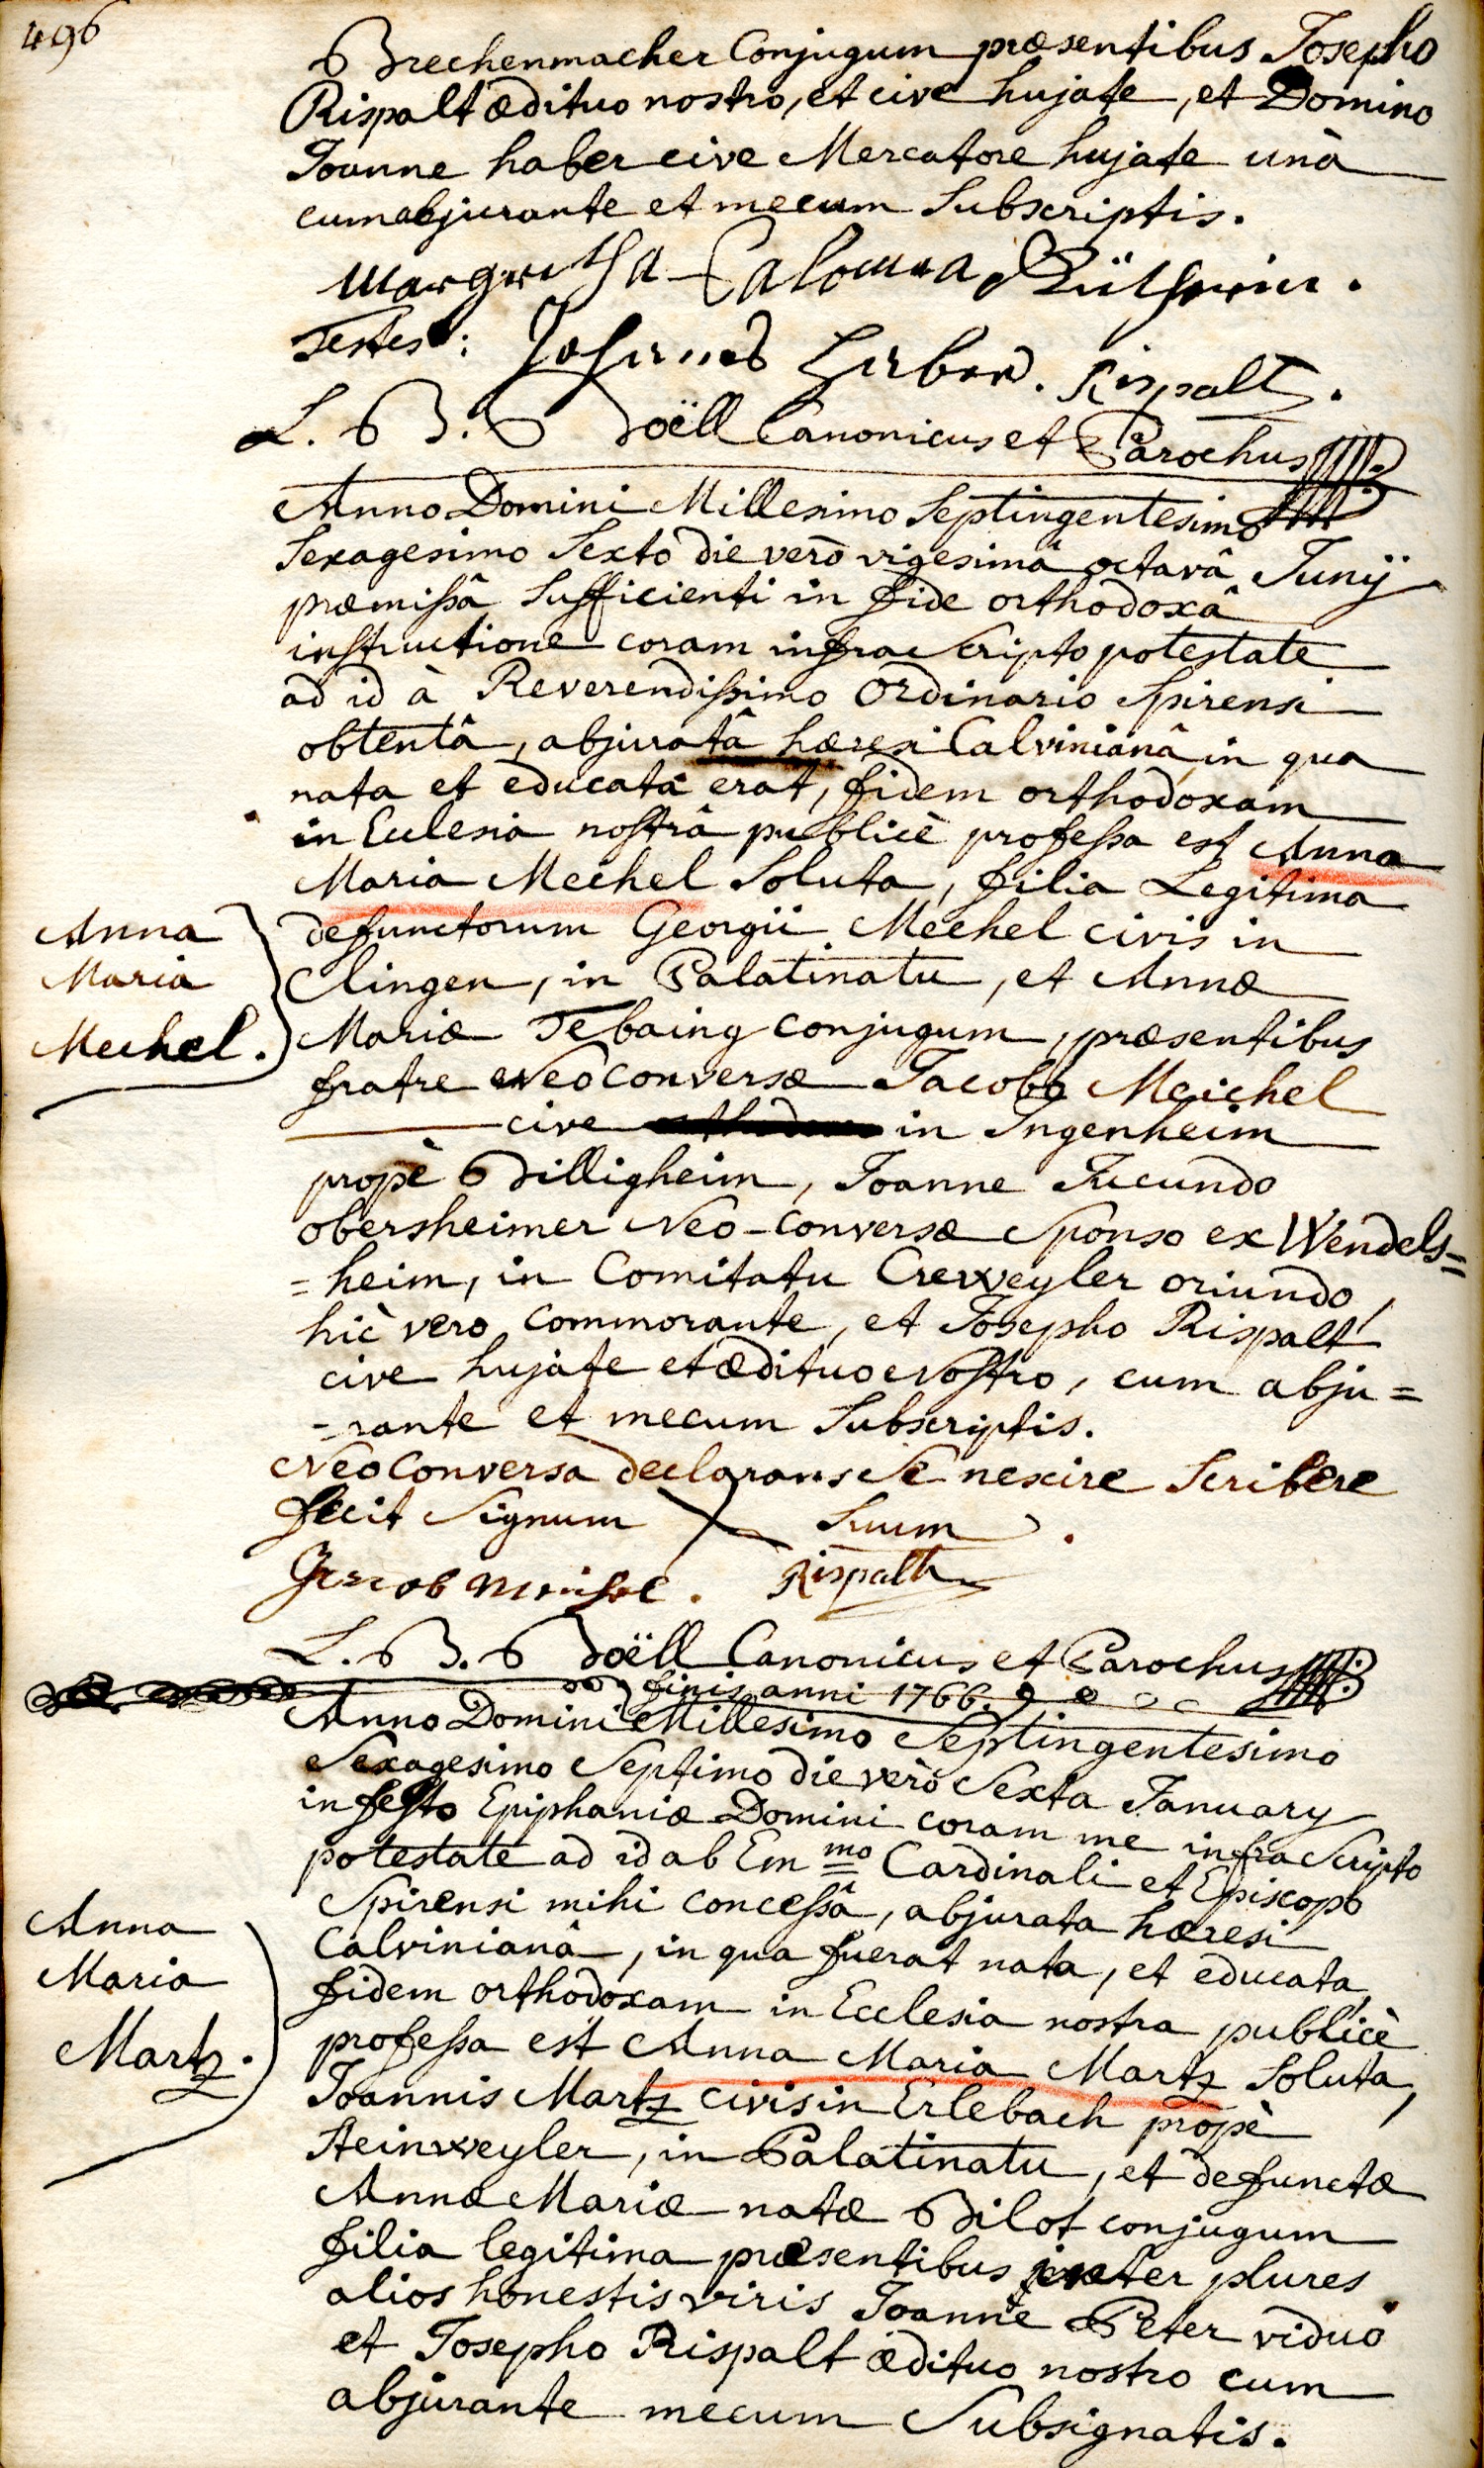 496
Brechenmacher Conjugum præsentibus Josepho
Rispalt ædituo nostro, et cive hujate, et Domino
Joanne haber cive Mercatore hujate unà
cum abjurante et mecum Subscriptis.
Margretha Saloma
Testes: Johannes Haber. Rispalt.
L. B. Boëll Canonicus et Parochus
Anno Domini Millesimo Septingentesimo
Sexagesimo Sexto die verò vigesimâ octavâ Junij
præmissâ Sufficienti in fide orthodoxâ
instructione coram infra Scripto potestate
ad id à Reverendissimo Ordinario Spirensi
obtentâ, abjuratâ hæresi Calvinianâ in qua
nata et educata erat, fidem orthodoxam
in Eclesia nostrâ publicè professa est Anna
Maria Mechel Soluta, filia Legitima
defunctorum Georgii Mechel civis in
Clingen, in Palatinatu, et Annæ
Mariæ Tebaing conjugum, præsentibus
fratre Neo conversæ Jacobo Meichel
cive in Ingenheim
propè Billigheim, Joanne Jucundo
obersheimer Neo-conversæ Sponso ex Wendels=
=heim, in Comitatu Creweyler oriundo,
hic vero commorante, et Josepho Rispalt
cive hujate et ædituo Nostro, cum abju=
=rante et mecum Subscriptis.
Neo Conversa declarans Se nescire Scribere
fecit Signum X Suum.
Jacob Meichel. Rispalt
L. B. Boëll Canonicus et Parochus
finis anni 1766.
Anno Domini Millesimo Septingentesimo
Sexagesimo Septimo die verò Sexta January
in festo Epiphaniæ Domini coram me infra Scripto
potestate ad id ab Em mo Cardinali et Episcopo
Spirensi mihi concessâ, abjurata hæresi
Calvinianâ, in qua fuerat nata, et educata,
fidem orthodoxam in Ecclesia nostra publicè
professa est Anna Maria Martz Soluta,
Joannis Martz civis in Erlebach propè
Steinweyler, in Palatinatu, et defunctæ
Annæ Mariæ natæ Bilot conjugum
filia legitima præsentibus inter plures
alios honestis viris Joanne Peter viduo
et Josepho Rispalt ædituo nostro cum
abjurante mecum Subsignatis.
Anna
Maria
Mechel.
Anna
Maria
Martz.